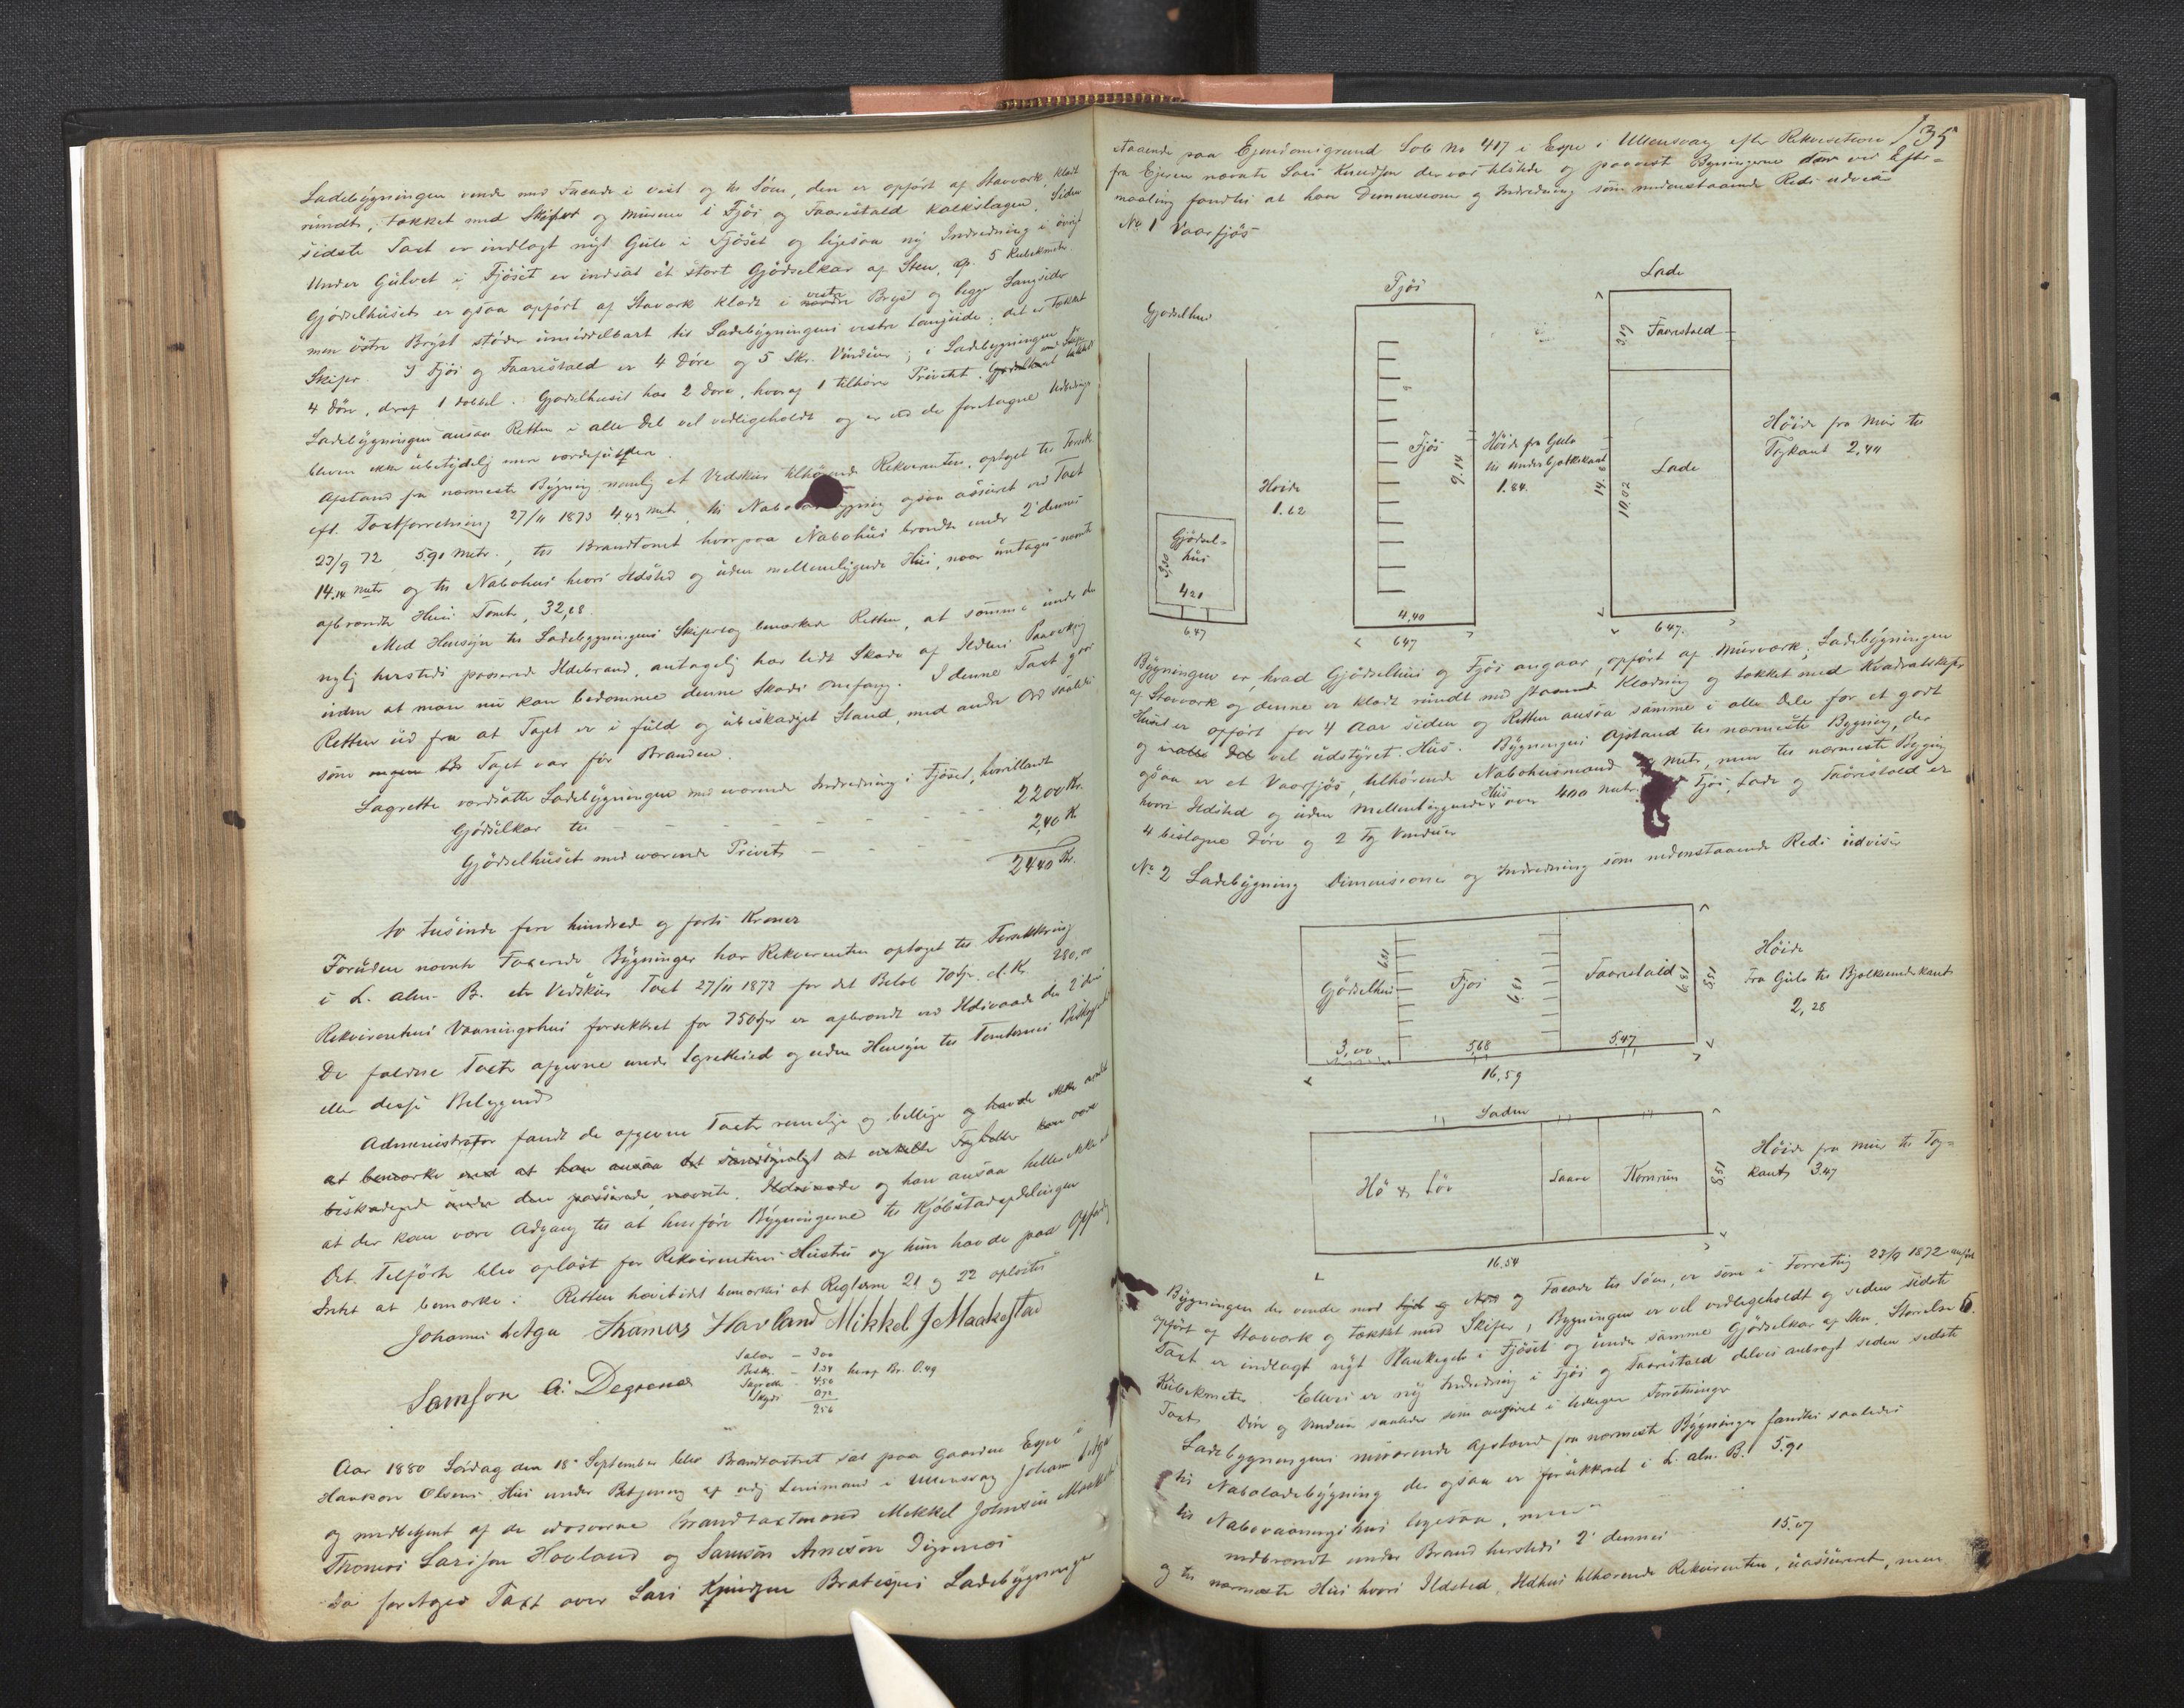 Ladebygningen vende med Facade i vest og til Søen, den er opført af Stavværk, klædt
rundt, tækket med Skifer og Murene i Fjøs og Faarestald kalkslagen. Siden
sidste Taxt er indlagt nyt Gulv i Fjøset og ligesaa ny Indredning i øvrigt
Under Gulvet i Fjøset er indsat et stort Gjødselkar af Sten, ca. 5 Kubikmeter.
Gjødselhuset er ogsaa opført af Stavværk klædt i vestre Bryst og begge Langsider
men østre Bryst støder umiddelbart til Ladebygningens vestre Langside; det er tækket
Skifer. I Fjøs og Faarestald er 4 Døre og 5 Skr. Vinduer; i Ladebygningen
4 Døre, deraf 1 dobbel. Gjødselhuset har 2 Døre, hvoraf 1 tilhører Privetet.
Ladebygningen ansaa Retten i alle Del vel vedligeholdt og er ved de foretagne
bleven ikke ubetydelig mere værdifuldere.
Afstand fra nærmeste Bygning nemlig et Vedskur tilhørende Rekvirenten, optaget til Forsik
eft. Taxtforretning 27/11 1873 4,43 metr, til Nabo bygning ogsaa assureret ved Taxt
23/9 72 5.90 metr., til Brandtomt hvorpaa Nabohus brændte under 2 dennes
14.14 metr og til Nabohus hvori Ildsted og uden mellemliggende Hus, naar undtages nævnte
afbrændte Huus Tomt, 32,68.
Med Hensyn til Ladebygningens Skifertag bemærker Retten, at samme under den
nylig hersteds passerede Ildebrand, antagelig har lidt Skade af Ildens Paavirkning
uden at man nu kan bedømme denne Skades Omfang. I denne Taxt gaar
Retten ud fra at Taget er i fuld og ubeskadiget Stand, med andre Ord saaledes
som Taget var før Branden.
Lagrette værdsatte Ladebygningen med værende Indredning i Fjøset, herunder
Gjødselkar til - - - - - 2200 Kr.
Gjødselhuset med værende Privet - - - 240 K.
2440 Kr.
to tusinde fire hundrede og forti Kroner
Foruden nævnte Taxerede Bygninger har Rekvirenten optaget til Forsikkring
i L. alm. B. et Vedskur Taxt 27/11 1873 for det Beløb 70 Spd. el. Kr. 280,00
Rekvirentens Vaaningshus forsikkret for 750 Spd er afbrændt ved Ildsvaade den 2 dennes
De faldne Taxter afgivne under Lagrettesed og uden Hensyn til Tomternes Beliggenhed
eller desse Belyggende
Administrator fandt de afgivne Taxter rimelige og billige og havde ikke andet
at bemærke end at han ansaa det sandsynligt at enkelte Tagheller kan være
beskadigede under den passerede nævnte Ildsvaade og han ansaa heller ikke at
at der kan være Adgang til at henføre Bygningerne til Kjøbstadafdelingen
Det Tilførte blev oplæst for Rekvirentens Hustru og hun havde paa Opfordring
Intet at bemærke. Retten havde idet bemærkes at Reglerne 21 og 22 oplæstes
Johannes L Aga Thomas Havland Mikkel J Maakestad
Samson A: Degranes
Salær — 3.00
Besk. — 1.34 heraf Br. 0.49
Lagrette - 4.50
Skyds
Aar 1880 Lørdag den 18 September blev Brandtaxtret sat paa Gaarden Espe i
Haakon Olsens Hus under Betjening af adj. Lensmand i Ullensvang Johannes L Aga
og medbetjent af de edsvorne Brandtaxtmænd Mikkel Johnsen Maakestad
Thomas Larssen Hovland og Samson Arneson Digranes
da foretages Taxt over Lars Knudsen Bratespes Ladebygninger
135
staaende paa Ejendomsgrund Løb No 417 i Espe i Ullensvang efter Rekvisition
fra Ejeren nævnte Lars Knudsen der var tilstede og paavist Bygningerne ved Efter-
maaling fandtes at have Dimensioner og Indredning som nedenstaaende Rids udviser
No 1 Vaarfjøs
Gjødselhus
Fjøs
Lade
Gjødsel-
hus
3,30
4.20
647
Høide
1.62
Fjøs
9.14
4,40
647
Høide fra Gulv
til underbjelkekant
1.84.
Faarestald
3,19
Lade
10,02
647.
Høide fra Mur til
Tagkant 2,44
Bygningen er, hvad Gjødselhus og Fjøs angaar, opført af Murværk; Ladebygningen
af Stavværk og denne er klædt rundt med staaende Klædning og tækket med Kvadratskifer
Huset er opført for 4 Aar siden og Retten ansaa samme i alle Dele for et godt
og vel udstyret Hus. Bygningens Afstand til nærmeste Bygning, der
ogsaa er et Vaarfjøs, tilhørende Nabohusmand metr, men til nærmeste Bygning
hvori Ildsted og uden mellemliggende Hus over 400 metr. Fjøs, Lade og Faarestald er
4 beslagne Døre og 2 Fg Vinduer
No 2 Ladebygning Dimensioner og Indredning som nedenstaaende Rids udviser
Gjødselhus
6.31
3,00
Fjøs
6.31
5,68
Faarestald
6.31
5.47
5.51
16,59
Høide
Fra Gulv til Bjelkeunderkant
2,28
Laden
Hø & Løv
Laave
Kornrum
5.51
16.54
Høide fra Mur til Tag-
kant 3.47
Bygningen der vende mod og Facade til Søen, er som i Forretning 23/9 1872 anført
opført af Stavværk og tækket med Skifer, Bygningen er vel vedligeholdt og siden sidste
Taxt er indlagt nyt Plankegulv i Fjøset og under samme Gjødselkar af Sten, Størrelse 6.
Kubikmeter. Ellers er ny Indredning i Fjøs og Faarestald delvis anbragt siden sidste
Taxt. Døre og Vinduer saaledes som angivet i tidligere Forretninger
Ladebygningens nuværende Afstand fra nærmeste Bygninger fandtes saaledes
til Naboladebygning der ogsaa er forsikkret i L. alm. B. 5.90
til Nabovaaningshus ligesaa, men
nedbrændt under Brand hersteds 2 dennes 15.07
og til nærmeste Hus hvori Ildsted, Ildhus tilhørende Rekvirenten, uassureret, men